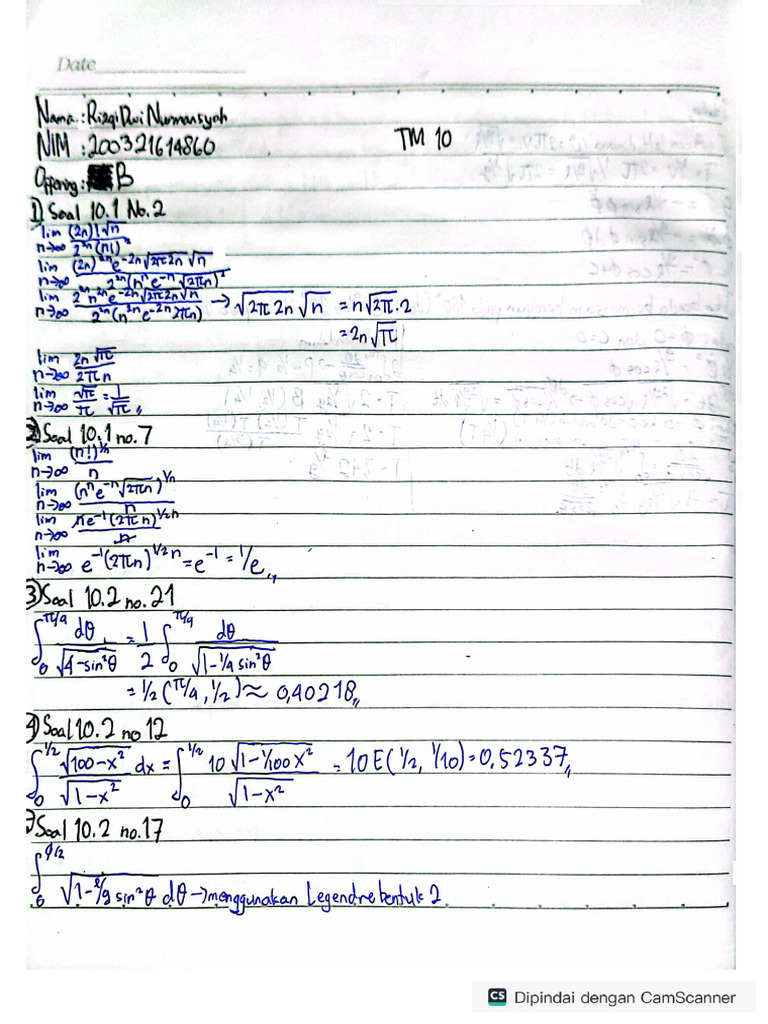 Date
Nama : Rizqi Dwi Nurmansyah
NIM : 200321614860
TM 10
Offering : B
1) Soal 10.1 No.2
lim n→∞ (2n)!√n / 2²ⁿ(n!)²
lim n→∞ (2n)²ⁿe⁻²ⁿ√2π2n √n / 2²ⁿ(nⁿe⁻ⁿ√2πn)²
lim n→∞ 2²ⁿn²ⁿe⁻²ⁿ√2π2n √n / 2²ⁿ(n²ⁿe⁻²ⁿ2πn) → √2π2n √n = n√2π.2
= 2n√π
lim n→∞ 2n√π / 2πn
lim n→∞ √π/π = 1/√π //
2) Soal 10.1 no.7
lim n→∞ (n!)^1/n / n
lim n→∞ (nⁿe⁻ⁿ√2πn)^1/n / n
lim n→∞ ne⁻¹(2πn)^1/2n / n
lim n→∞ e⁻¹(2πn)^1/2n = e⁻¹ = 1/e //
3) Soal 10.2 no.21
∫₀^π/4 dθ / √4-sin²θ = 1/2 ∫₀^π/4 dθ / √1-1/4 sin²θ
= 1/2 (π/4, 1/2) ≈ 0,40218 //
4) Soal 10.2 no 12
∫₀^1/2 √100-x² / √1-x² dx = ∫₀^1/2 10√1-1/100x² / √1-x² = 10E(1/2, 1/10) = 0,52337 //
Soal 10.2 no.17
√1-2/9 sin²θ dθ → menggunakan Legendre bentuk 2
CS Dipindai dengan CamScanner